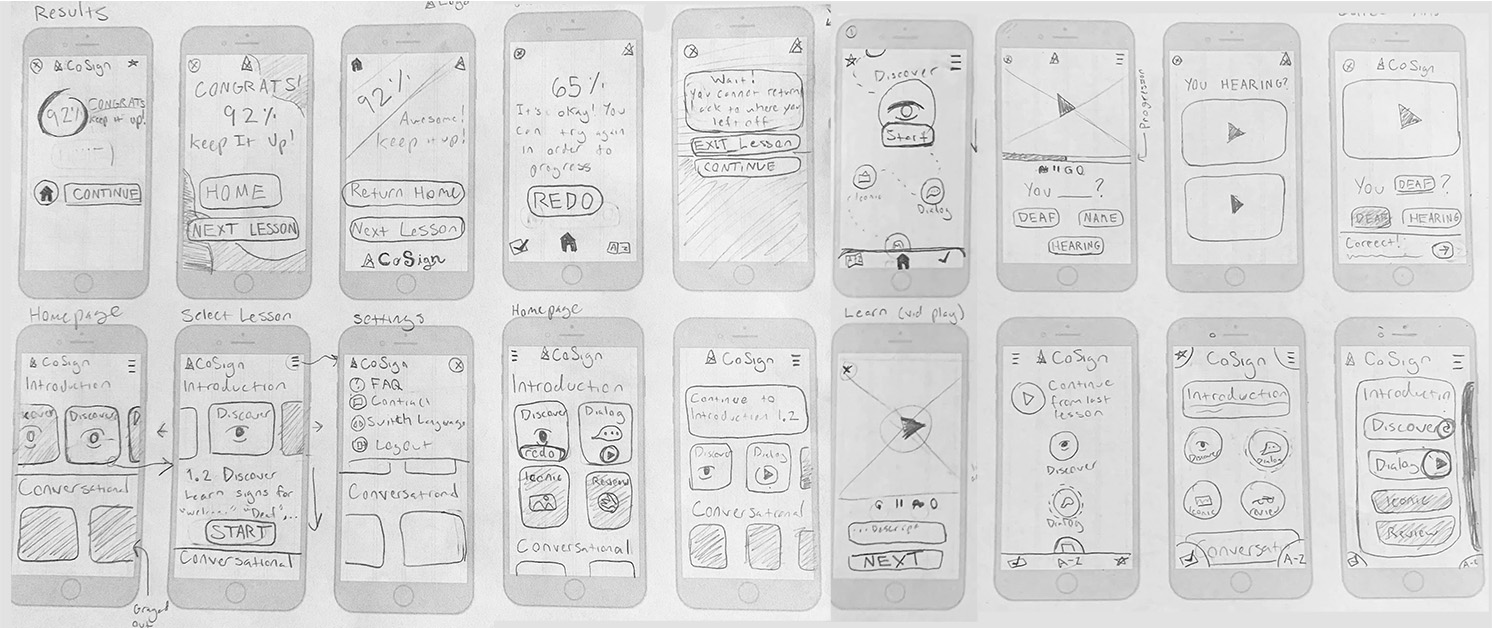 Results
CoSign
92%
CONGRATS
keep it up!
CONTINUE
CONGRATS!
92%
keep It Up!
HOME
NEXT LESSON
92%
Awesome!
keep it up!
Return Home
Next Lesson
CoSign
65%
It's okay! You
can try again
in order to
progress
REDO
A Z
Wait!
You cannot return
back to where you
left off
EXIT Lesson
CONTINUE
Discover
Start
Iconic
Dialog
Progression
You ___?
DEAF
NAME
HEARING
YOU HEARING?
CoSign
You DEAF?
DEAF
HEARING
Correct!
Homepage
CoSign
Introduction
Discover
Conversational
Grayed
out
Select Lesson
CoSign
Introduction
Discover
1.2 Discover
Learn signs for
"Deaf"...
START
Conversational
Settings
CoSign
FAQ
Contact
Switch Language
Logout
Conversational
Homepage
CoSign
Introduction
Discover
Dialog
redo
Iconic
Review
Conversational
CoSign
Continue to
Introduction 1.2
Discover
Dialog
Conversational
Learn (vid play)
NEXT
CoSign
Continue
from last
lesson
Discover
Dialog
A-Z
CoSign
Introduction
Discover
Dialog
Iconic
Conversat
A-Z
CoSign
Introductin
Discover
Dialog
Iconic
Review